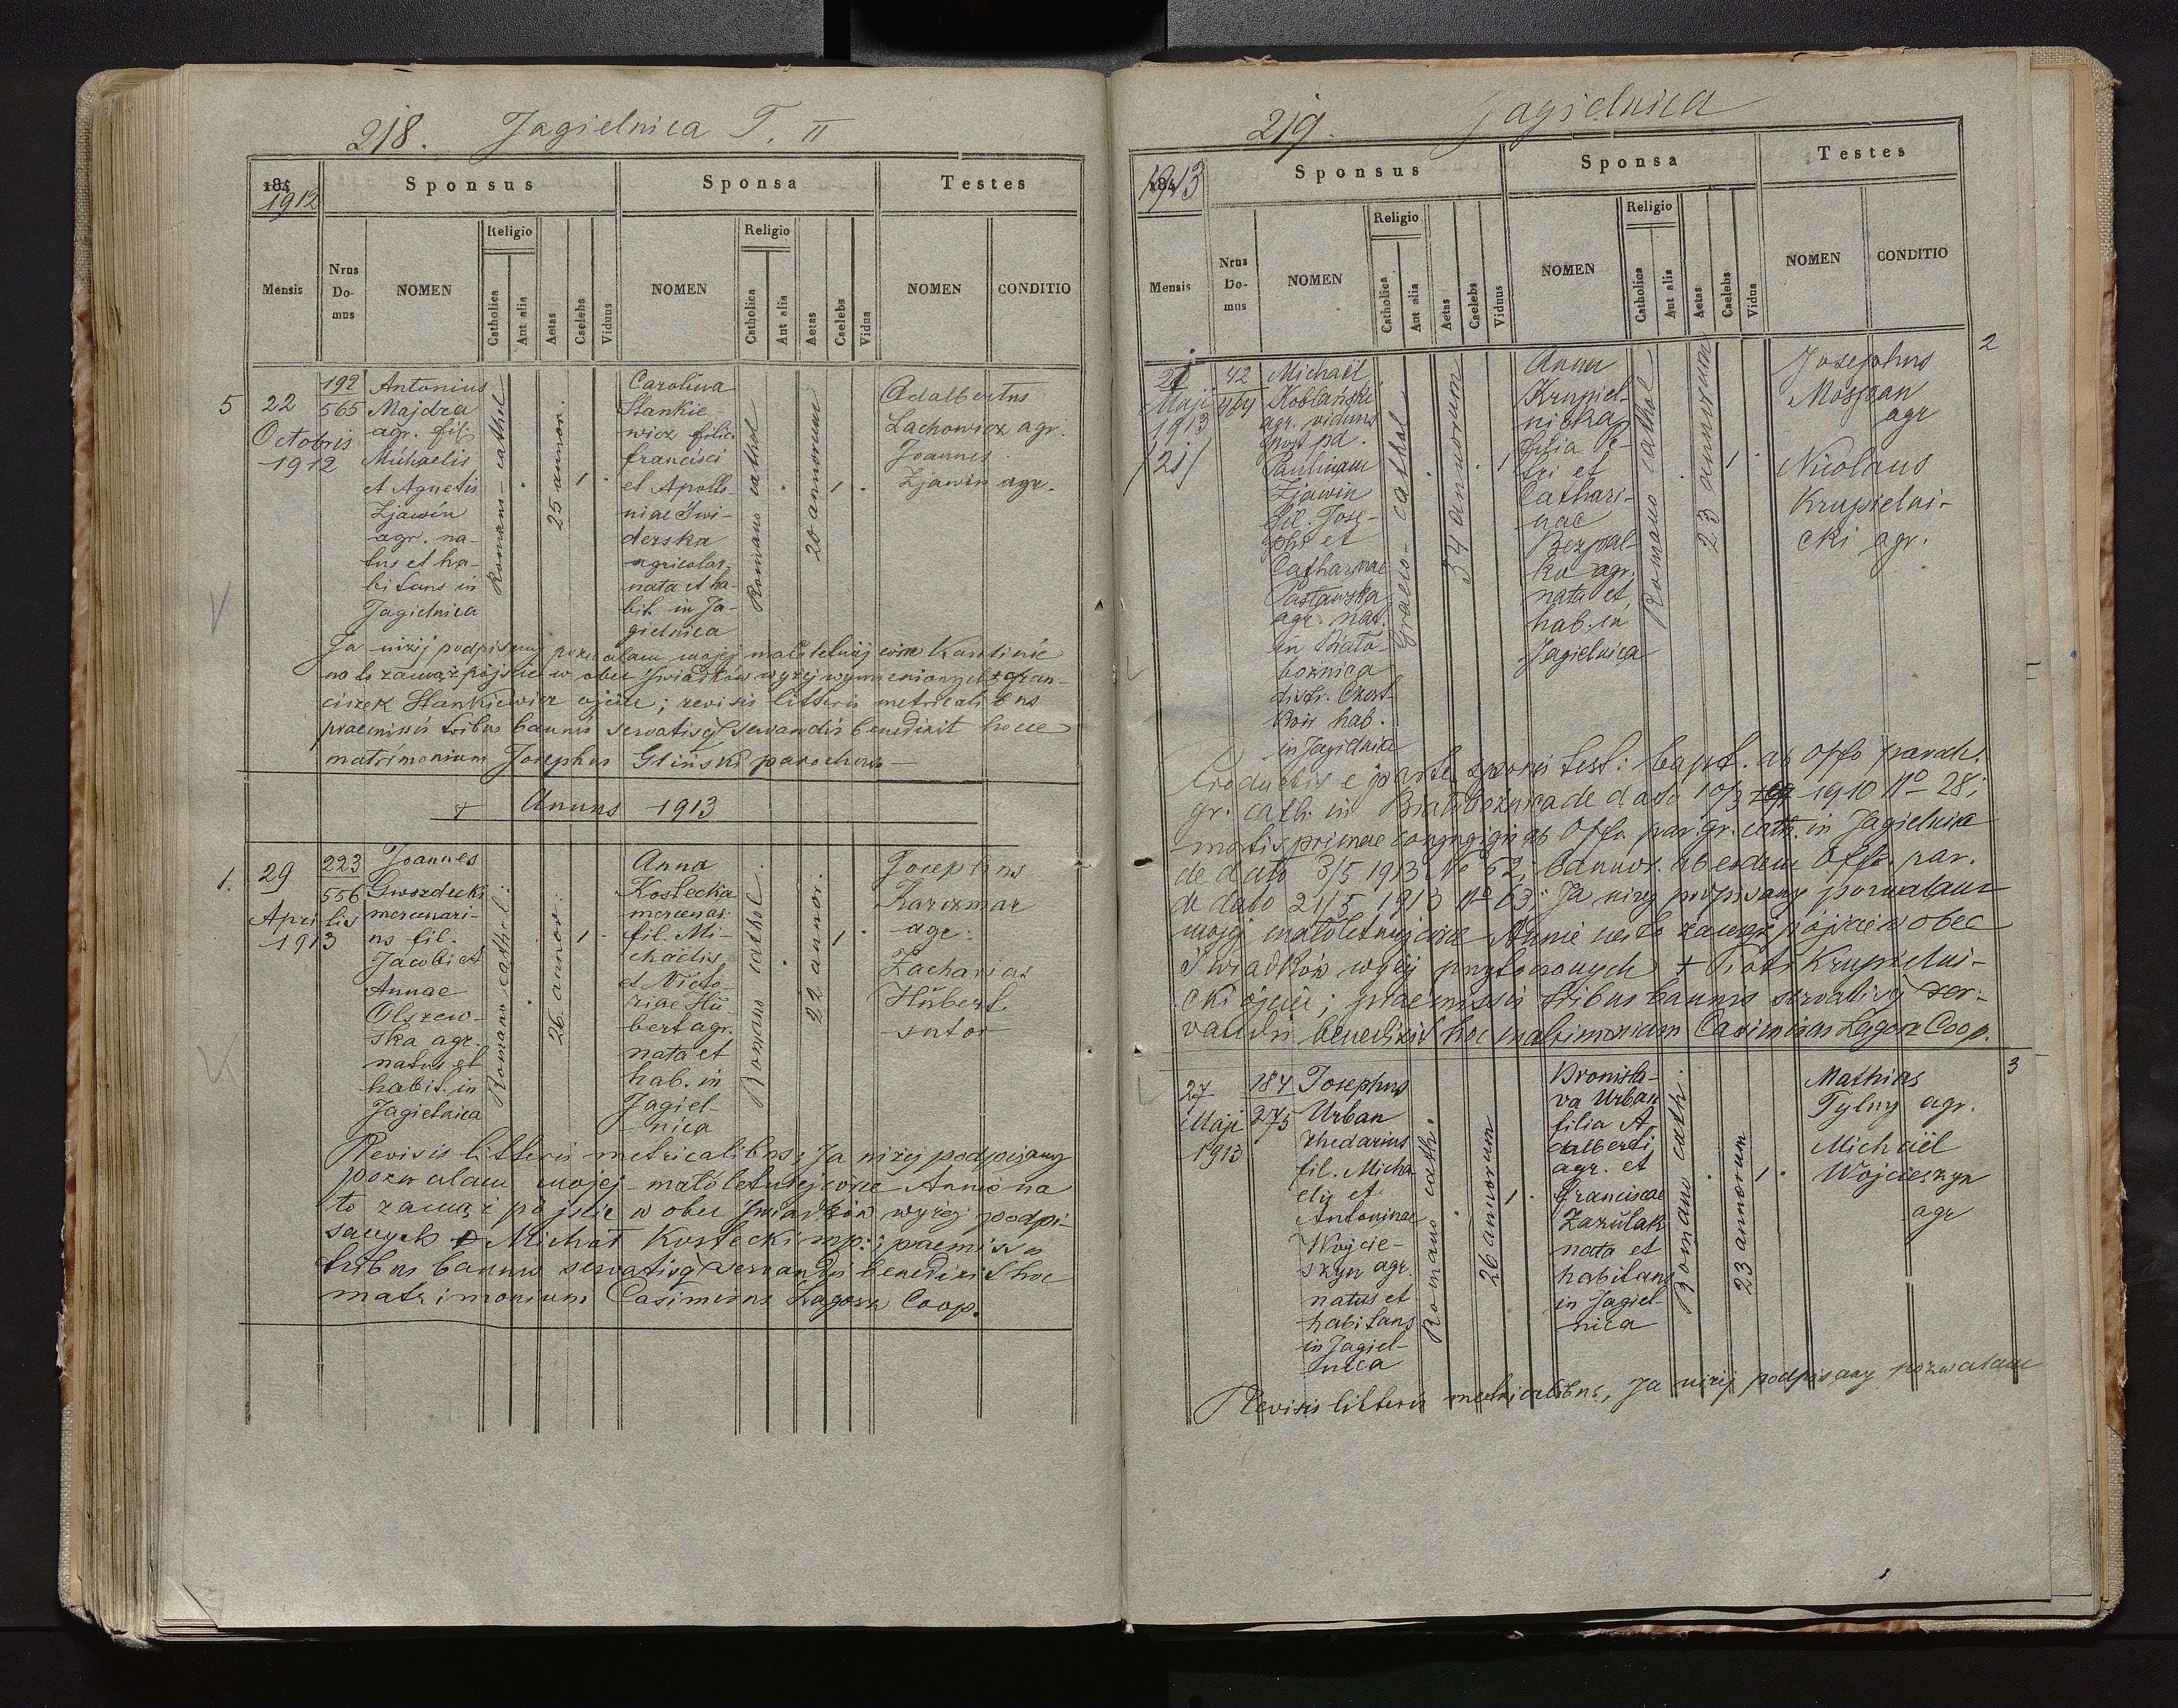 218. Jagielnica T. II
184
1912
Sponsus
Sponsa
Testes
Mensis
Nrus
Do-
mus
NOMEN
Religio
Catholica
Aut alia
Aetas
Caelebs
Viduus
NOMEN
Religio
Catholica
Aut alia
Aetas
Caelebs
Vidua
NOMEN
CONDITIO
5
22
Octobris
1912
192
565
Antonius
Majdza
agr. fil.
Michaelis
et Agnetis
Zjawin
agr. na-
tus et ha-
bitans in
Jagielnica
Romano-cathol
25 annor.
1
Carolina
Stankie-
wicz filia
Francisci
et Apollo-
niae Swi-
derska
agricolar.
nata et ha-
bit. in Ja-
gielnica
Romano cathol
20 annorum
1
Adalbertus
Lachowicz agr.
Joannes
Zjawin agr.
Ja niżej podpisany pozwalam mojej małoletniej córce Karolinie
na to zamążpójście w obec świadków wyżej wymienionych + Fran-
ciszek Stankiewicz ojciec; revisis litteris metricalibus
praemissis tribus bannis servatisq servandis benedixit hocce
matrimonium Josephus Gliński parochus
+ Annus 1913
1.
29
Aprilis
1913
223
556
Joannes
Gwozdecki
mercenari-
us fil.
Jacobi et
Annae
Olszew-
ska agr.
natus et
habit. in
Jagielnica
Romano cathol:
26 annor:
1
Anna
Kostecka
mercenar:
fil. Mi-
chaelis
et Victo-
riae Hü-
bert agr.
nata et
hab. in
Jagiel-
nica
Romano cathol
22 annor.
1
Josephus
Karczmar
agr.
Zacharias
Hübert
sutor
Revisis litteris metricalibus; Ja niżej podpisany
pozwalam mojej małoletniej córce Annie na
to zamąż pójście w obec świadków wyżej podpi-
sanych Michał Kostecki mp.; praemissis
tribus bannis servatisq servandis benedixit hoc
matrimonium Casimirus Lagosz Coop.
219. Jagielnica
184
1913
Sponsus
Sponsa
Testes
Mensis
Nrus
Do-
mus
NOMEN
Religio
Catholica
Aut alia
Aetas
Caelebs
Viduus
NOMEN
Religio
Catholica
Aut alia
Aetas
Caelebs
Vidua
NOMEN
CONDITIO
2
Maji
1913
/21/
42
Michaël
Koblański
agr. viduus
post pd.
Paulinam
Zjawin
fil. Jose-
phi et
Catharinae
Pasławska
agr. nat.
in Biało-
boznica
distr. Czort-
ków hab.
in Jagielnica
Graeco-cathol
34 annorum
1
Anna
Krupiel-
nicka
filia Pe-
tri et
Cathari-
nae
Bezpal-
ko agr.
nata et
hab. in
Jagielnica
Romano cathol
23 annorum
1
Josephus
Mospan
agr
Nicolaus
Krupielni-
cki agr.
Productis e parte sponsi test: bapt. ab Offo paroch.
gr. cath. in Białobożnica de dato 10/3 1910 No 28;
mortis primae conjugis ab Offo par. gr. cath. in Jagielnica
de dato 3/5 1913 No 62; bannor. ab eodem Offo. par.
de dato 21/5 1913 No 63; Ja niżej podpisany pozwalam
mojej małoletniej córce Annie na to zamąż pójście w obec
świadków wyżej przytoczonych + Piotr Krupielni-
cki ojciec; praemissis tribus bannis servatisq ser-
vandis benedixit hoc matrimonium Casimirus Lagosz Coop.
3
27
Maji
1913
184
275
Josephus
Urban
rhedarius
fil. Micha-
elis et
Antoninae
Wojcie-
szyn agr.
natus et
habitans
in Jagiel-
nica
Romano cath.
26 annorum
1
Bronisla-
va Urban
filia A-
dalberti
agr. et
Franciscae
Zazulak
nata et
habitans
in Jagiel-
nica
Romano cath.
23 annorum
1
Mathias
Tylny agr.
Michaël
Wojcieszyn
agr
Revisis litteris metricalibus, Ja niżej podpisany pozwalam